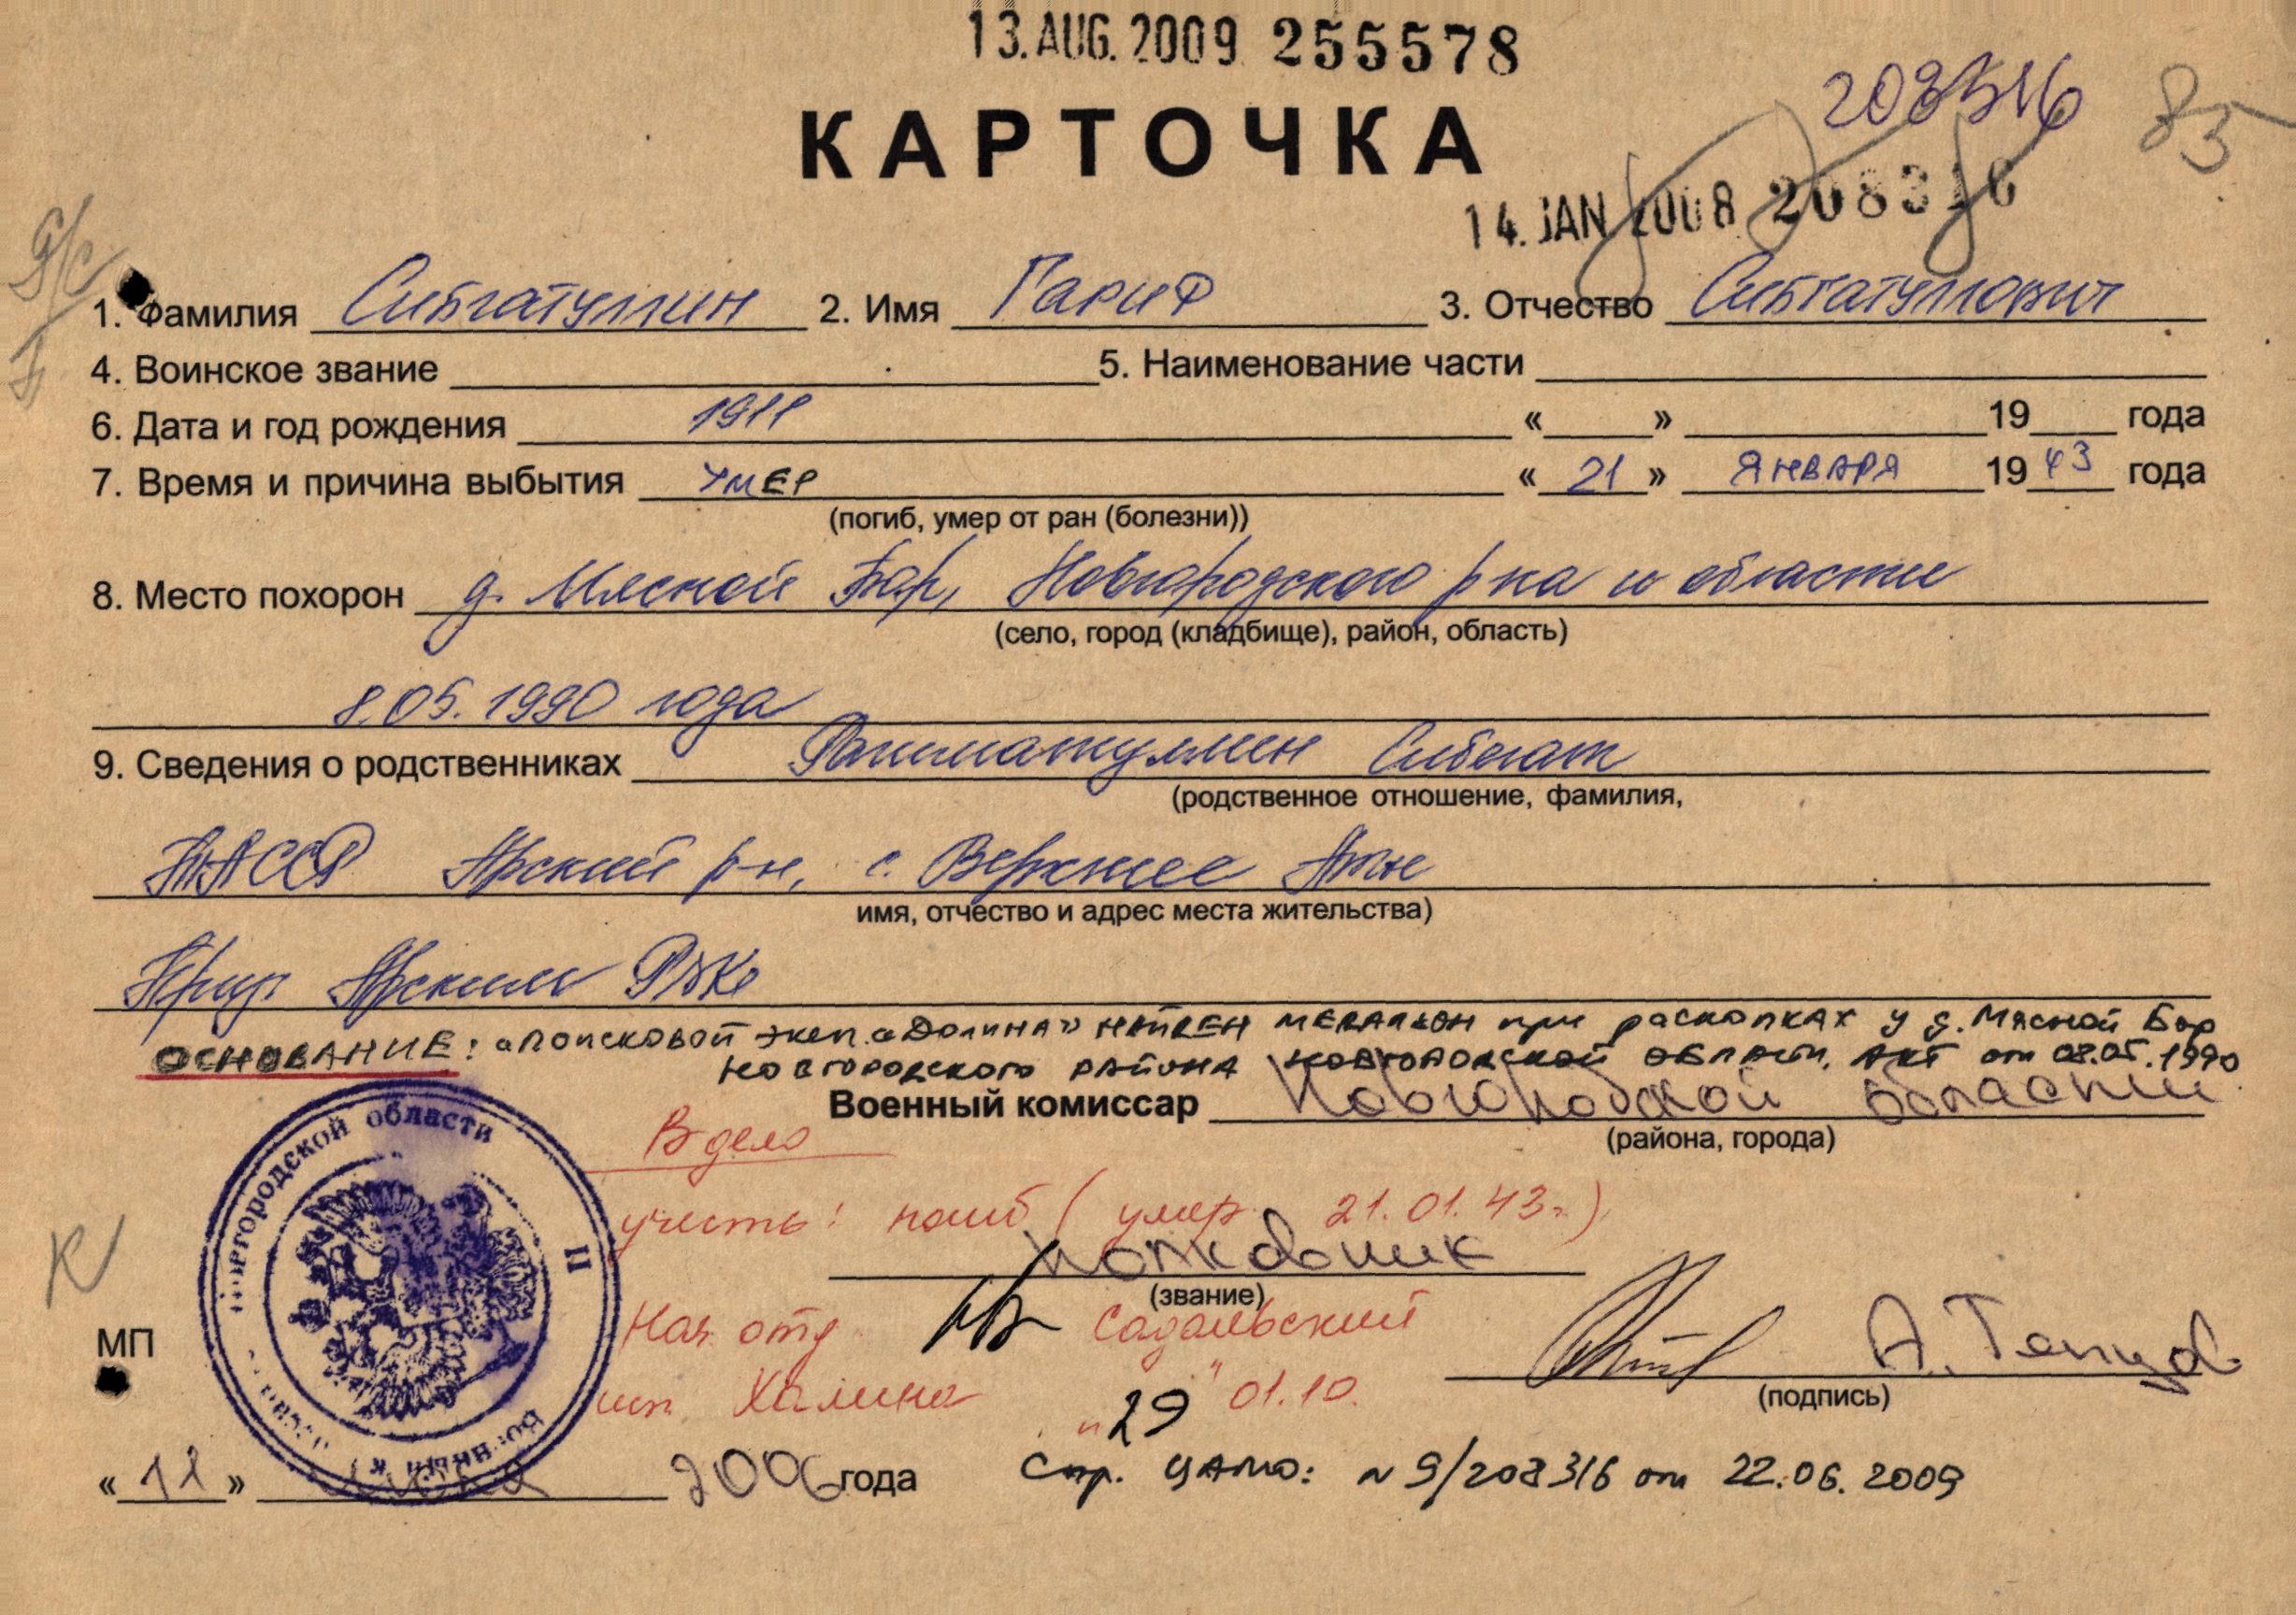 13. AUG. 2009 255578
208316
85
КАРТОЧКА
14. JAN 2008 208316
1. Фамилия Сибгатуллин 2. Имя Гариф 3. Отчество Сибгатуллович
4. Воинское звание 5. Наименование части
6. Дата и год рождения 1911 « » 19 года
7. Время и причина выбытия умер « 21 » января 19 43 года
(погиб, умер от ран (болезни))
8. Место похорон д. Мясной Бор, Новгородского р-на и области
(село, город (кладбище), район, область)
8.05.1990 года
9. Сведения о родственниках Рахматуллин Сибгат
(родственное отношение, фамилия,
ТАССР Арский р-н, с. Верхнее Аты
имя, отчество и адрес места жительства)
Приз. Арским РВК
ОСНОВАНИЕ: "Поисковой эксп. «Долина» найден медальон при раскопках у д. Мясной Бор
Новгородского района Новгородской области. Акт от 08.05.1990
Военный комиссар Новгородской области
(района, города)
В дело
учесть: погиб (умер 21.01.43г.)
полковник
(звание)
Нач. отд Садальский
А. Тепцов
(подпись)
исп. Халина "29" 01.10.
МП
Новгородской области
« 11 » 2006 года
Спр. ЦАМО: № 9/208316 от 22.06.2009